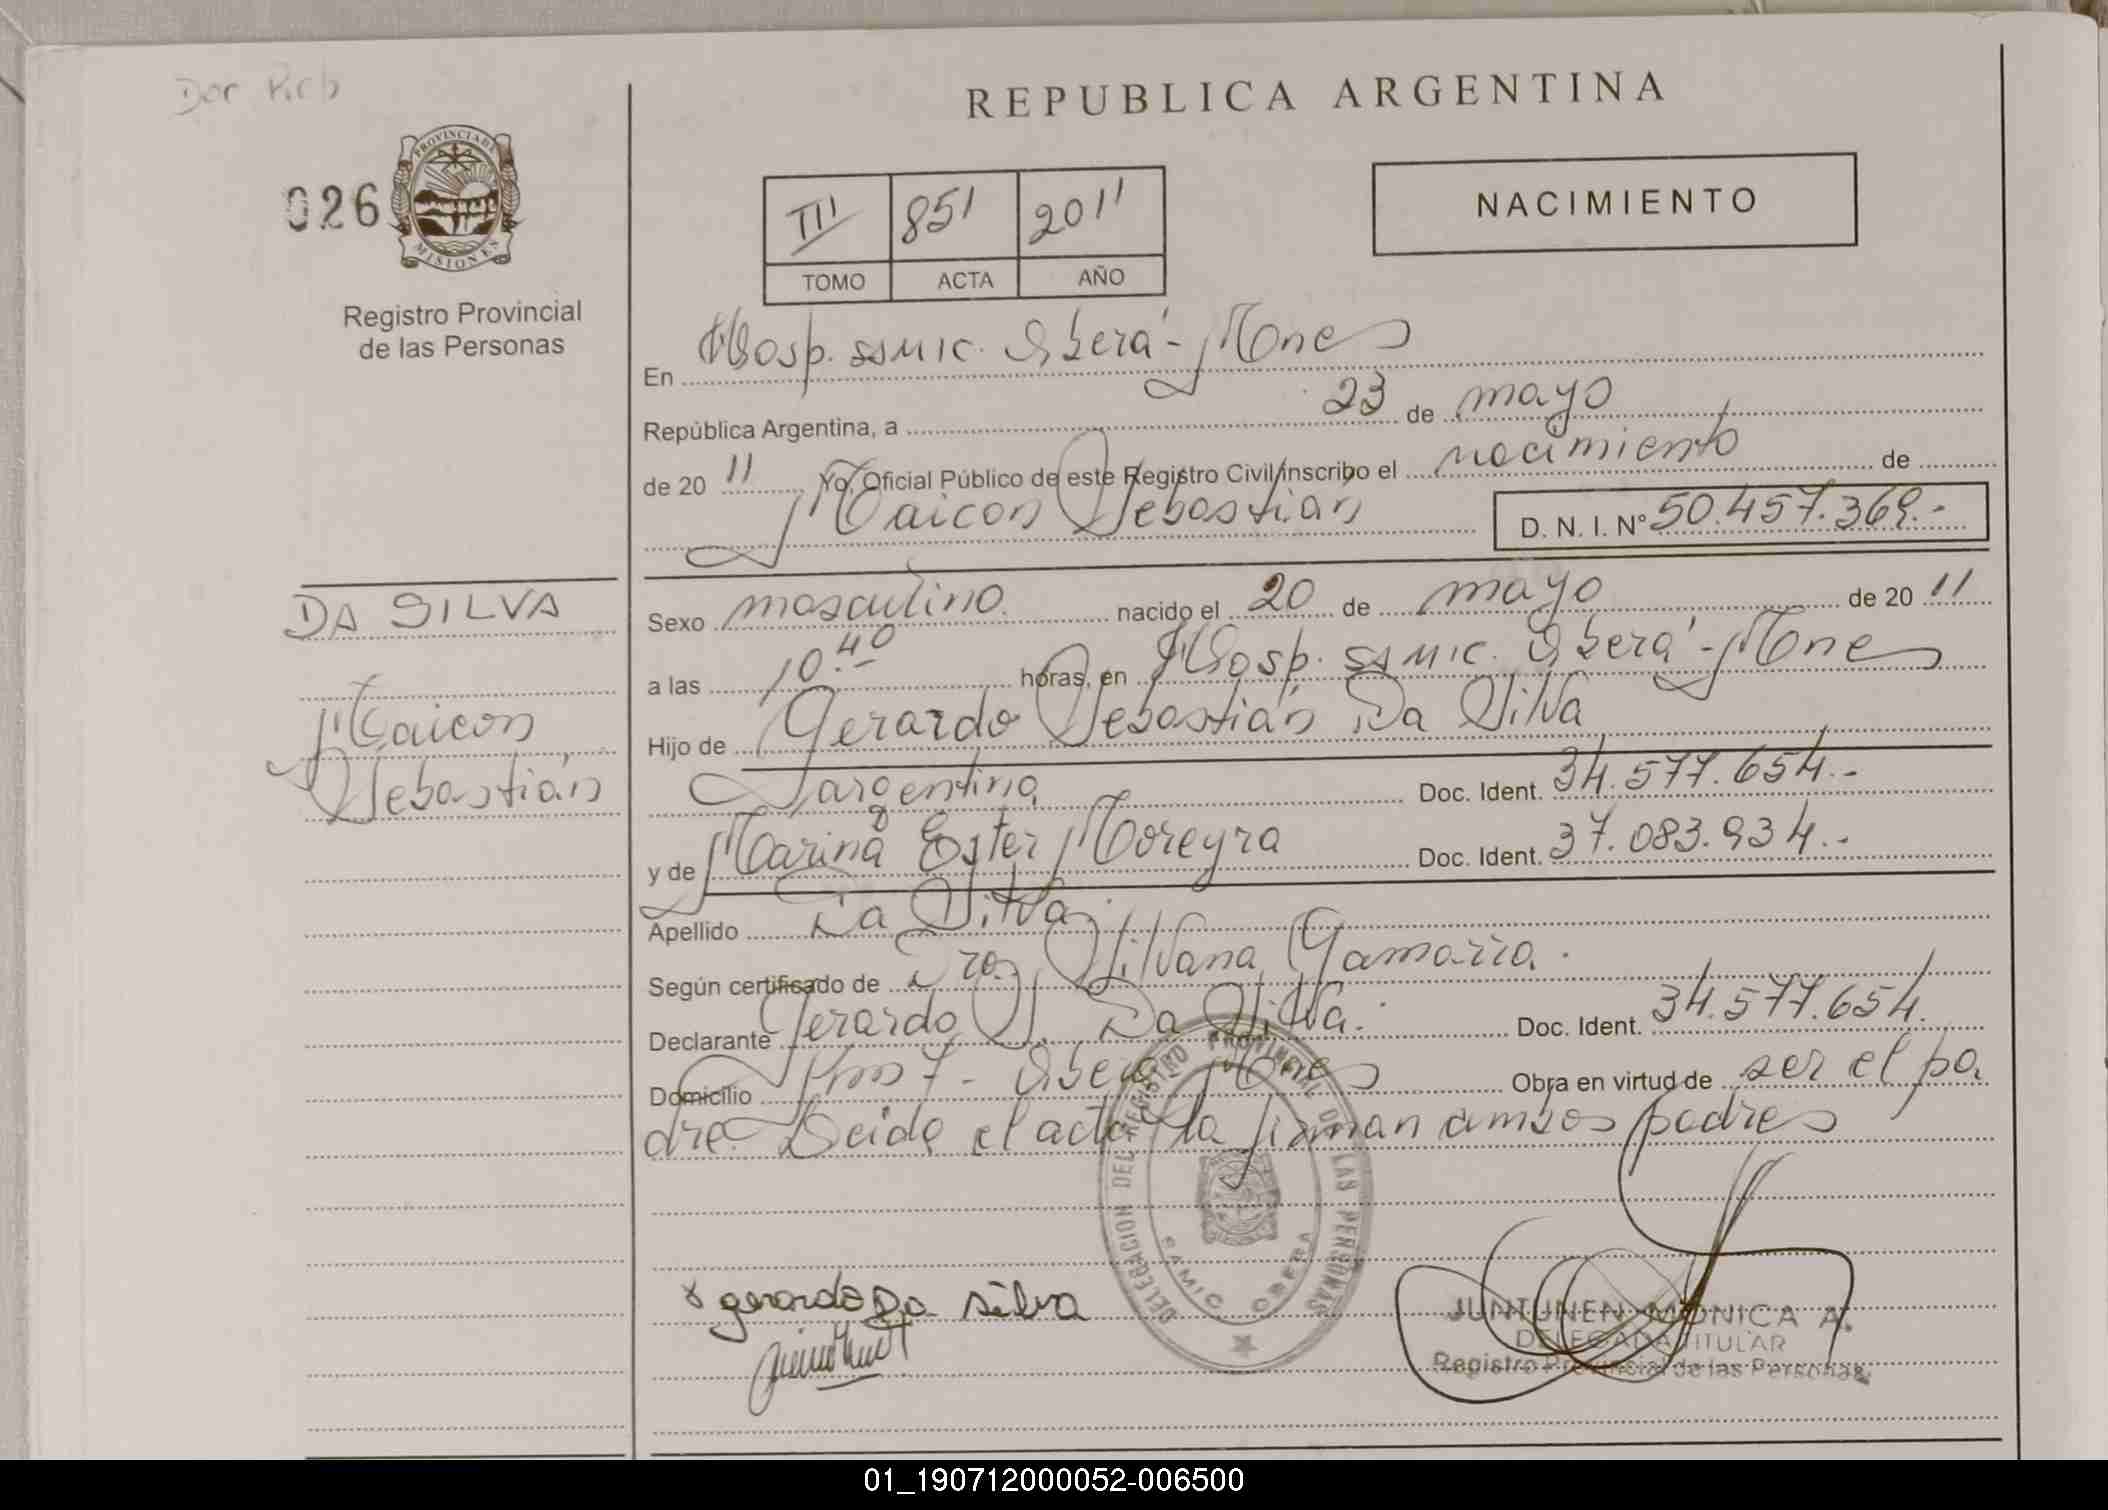 Doc Rcb
REPUBLICA ARGENTINA
026
PROVINCIA DE
MISIONES
Registro Provincial
de las Personas
III 851 2011
TOMO ACTA AÑO
NACIMIENTO
En Hosp. SSMIC. Oberá - Mnes
República Argentina, a 23 de mayo
de 20 11 Yo, Oficial Público de este Registro Civil inscribo el nacimiento de
Maicon Sebastián D. N. I. Nº 50.457.369.-
DA SILVA
Maicon
Sebastián
Sexo masculino nacido el 20 de mayo de 20 11
a las 10.40 horas, en Hosp. SSMIC. Oberá - Mnes
Hijo de Gerardo Sebastián Da Silva
argentino Doc. Ident. 34.577.654.-
y de Marina Ester Moreyra Doc. Ident. 37.083.934.-
Apellido Da Silva
Según certificado de Dra. Silvana Gamarra.
Declarante Gerardo S. Da Silva. Doc. Ident. 34.577.654.
Domicilio Km 7 - Oberá - Mnes Obra en virtud de ser el pa
dre. Leida el acta la firman ambos padres
DELEGACION DEL REGISTRO PROVINCIAL DE LAS PERSONAS
SAMIC OBERA
x gerardo Da Silva
JUNTUNEN MONICA A.
DELEGADA TITULAR
Registro Provincial de las Personas
01_190712000052-006500